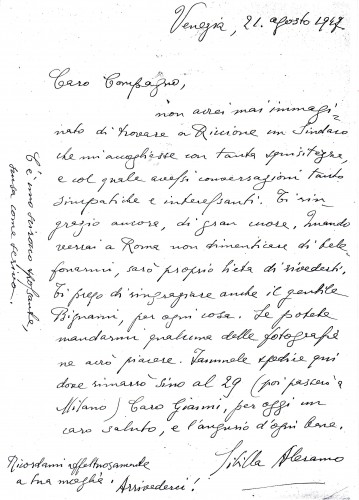 Venezia, 21. agosto 1947
Caro Compagno,
non avrei mai immagi=
nato di trovare a Riccione un Sindaco
che mi accogliesse con tanta squisitezza,
e col quale avessi conversazioni tanto
simpatiche e interessanti. Ti rin
grazio ancora, di gran cuore. Quando
verrai a Roma non dimenticare di tele
fonarmi, sarò proprio lieta di rivederti.
Ti prego di ringraziare anche il gentile
Bignami, per ogni cosa. Se potete
mandarmi qualcuna delle fotografie
ne avrò piacere. Fammele spedire qui
dove rimarrò sino al 29 (poi passerò a
Milano) Caro Gianni, per oggi un
caro saluto, e l'augurio d'ogni bene.
Sibilla Aleramo
Ricordami affettuosamente
a tua moglie. Arrivederci!
C'è uno scirocco spossante,
scusa come scrivo...